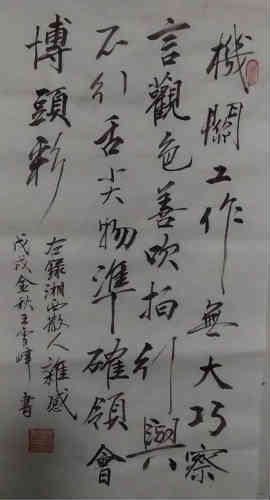 機關工作無大巧察
言觀色善吹拍引興
不引舌尖物準確領會
博頭彩
左錄湘西散人雜感
戊戌金秋王雪峰書